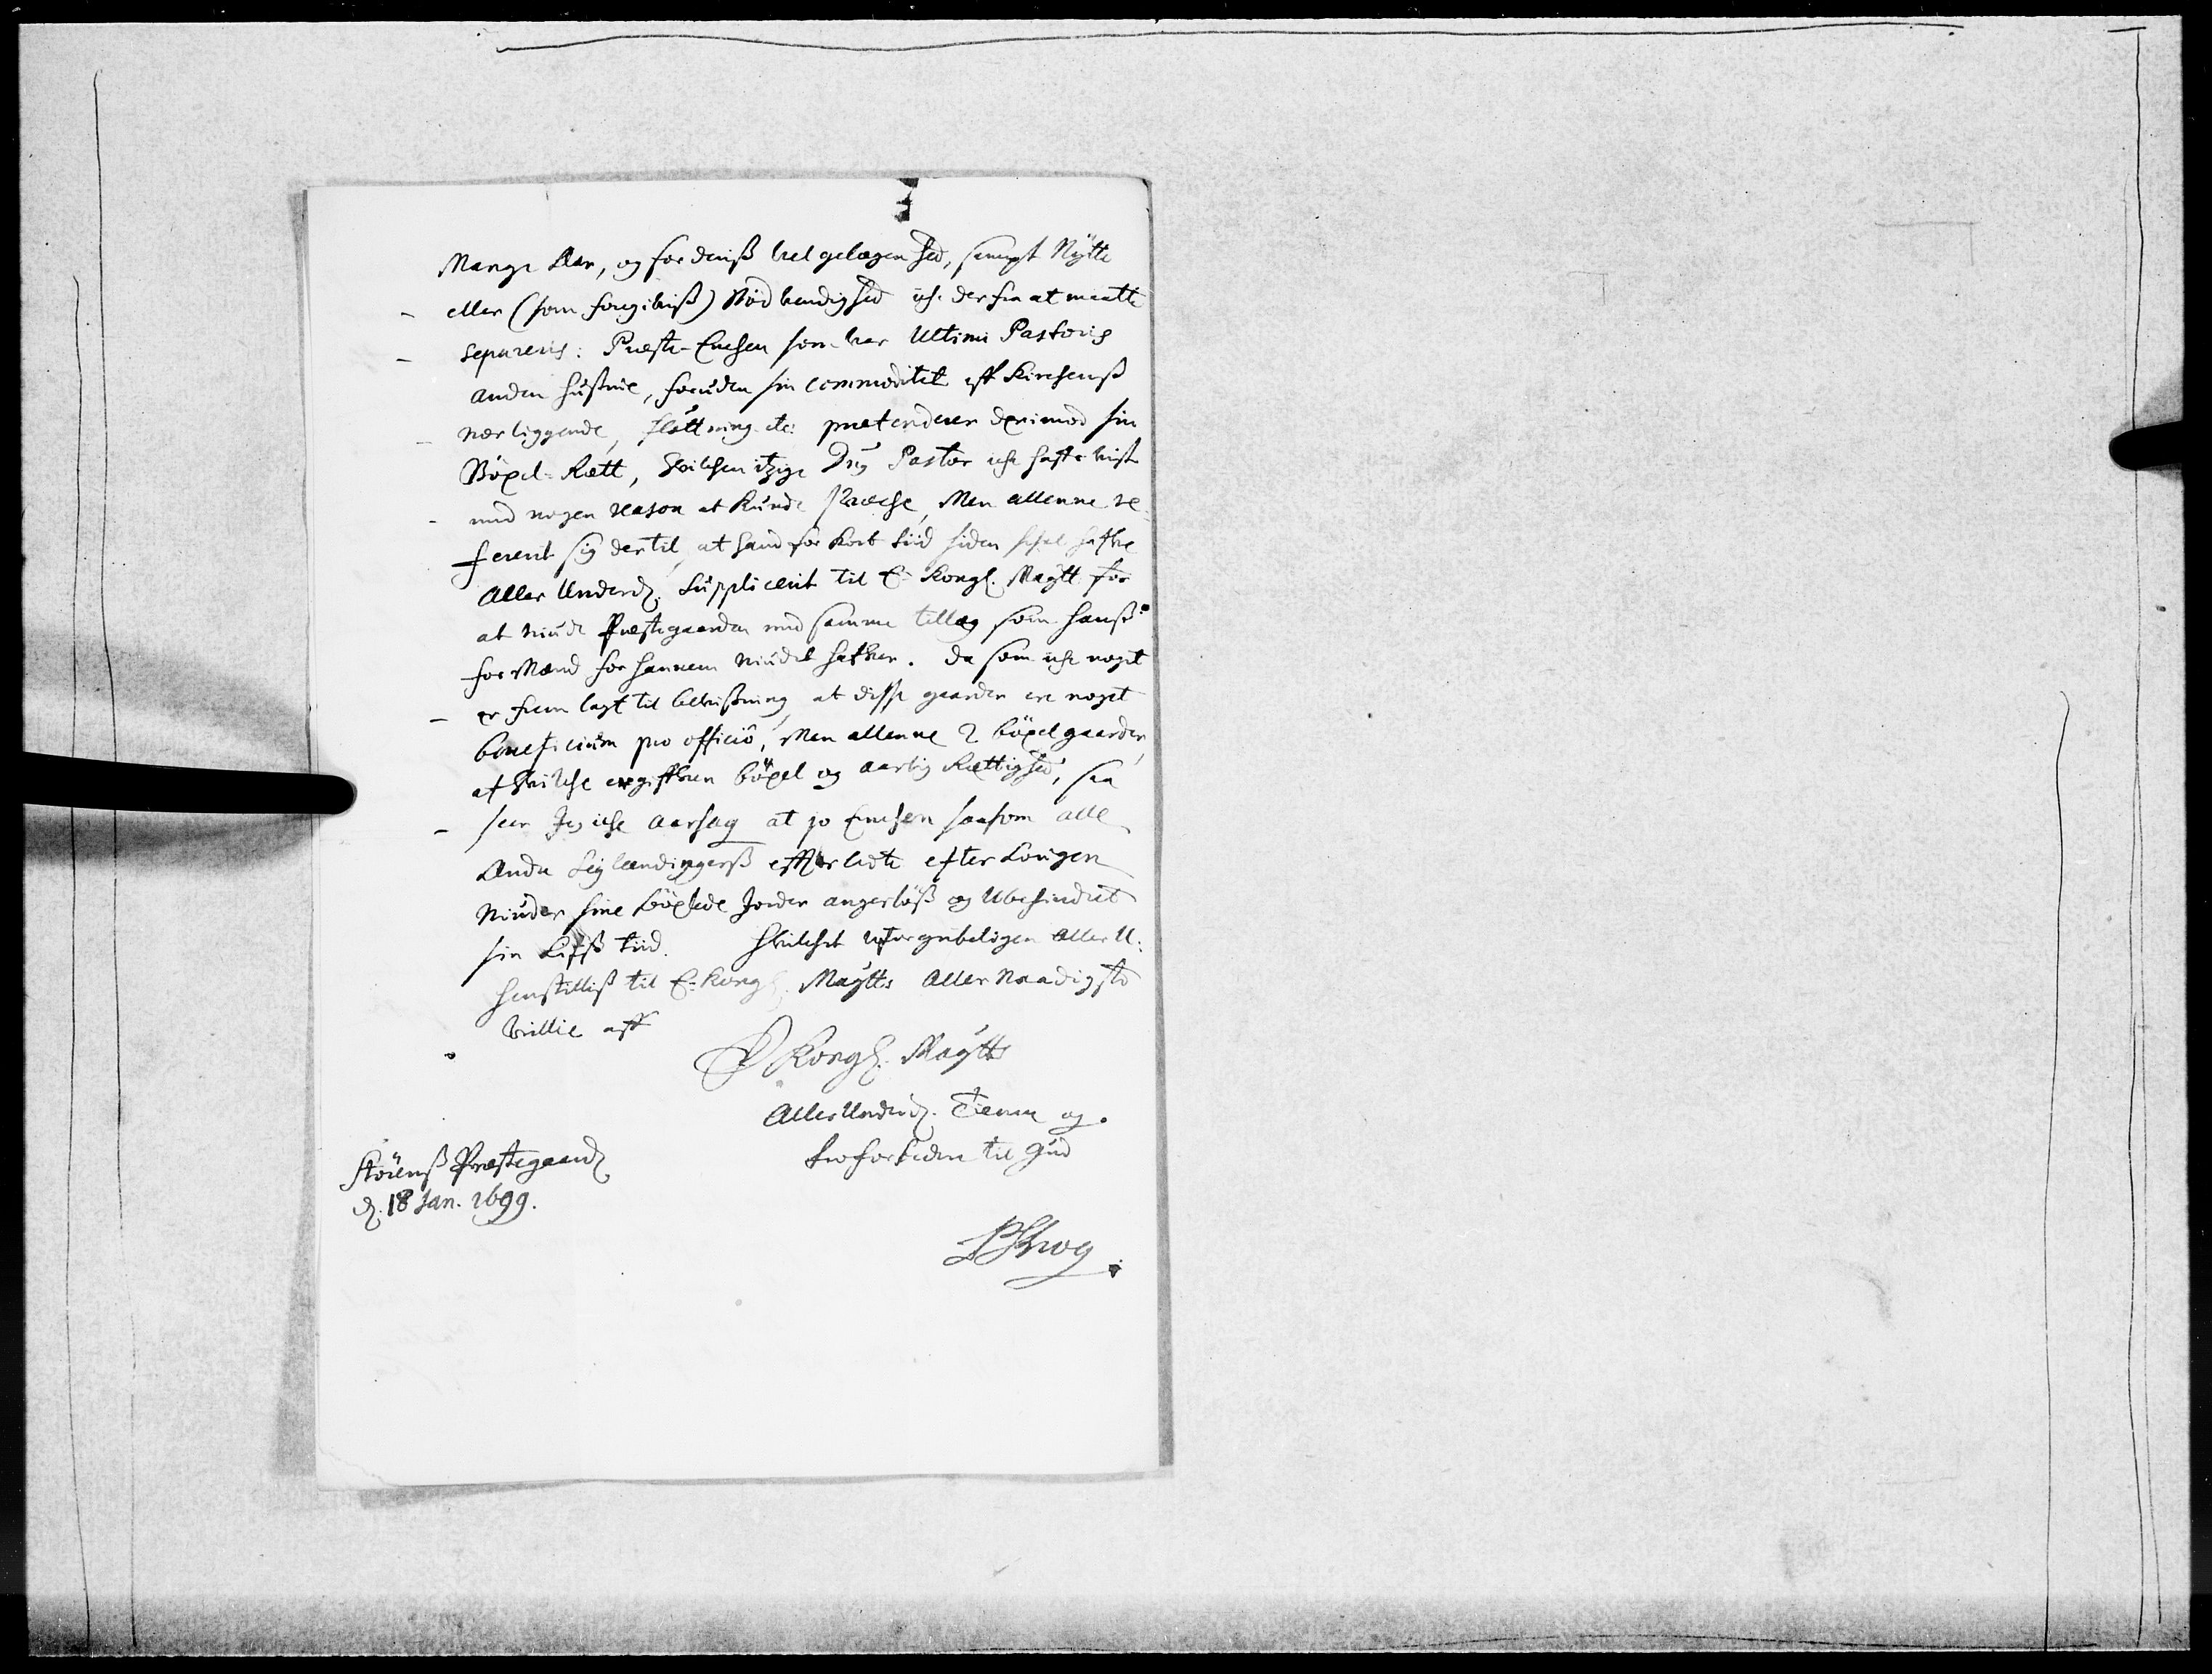 Mange Aar, og for denß velgelægenhed, sampt Nÿtte
eller (som foregifviß) Nödvendighed iche der fra at maatte
separeris: Præste-Enchen som var Ultimi Pastoris
anden hußtrue, foruden sin commoditet aff Kirchenß
nær liggende, flöttning etc: prætenderer derimod sin
Böxel-Rætt, hvilchen itzige Dns Pastor iche hafr vist
med nogen reason at kunde svæche, Men allenne re-
ferert sig dertil, at hand for kort tiid siden schal hafve
Aller Underd. Supplicerit til E. Kongl. Maÿtt for
at niude Præstegaarden med samme tillæg som hanß
forMænd for hannem niudet hafver. Da som iche noget
er frem lagt til bevißning, at disse gaarder ere noget
beneficium pro officiô, Men allenne 2 böxel gaarder,
af hvilche ergifven böxel og aarlig Rættighed, saa
seer Jeg iche aarsag at jo Enchen saasom alle
Andre Leylændingerß effterladte efter Lougen
Niuder sine böxlede Jorder angerlöß og Ubehindret
sin Lifß tiid. Hvilchet uforgribeligen Aller U:
henstilliß til E. Kongl. Maÿtts Aller Naadigste
Villie aff
E Kongl. Maÿtts
AllerUnderd. Tienner og
troforbeder til Gud
Störenß Præstegaard
d. 18 Jan. 1699.